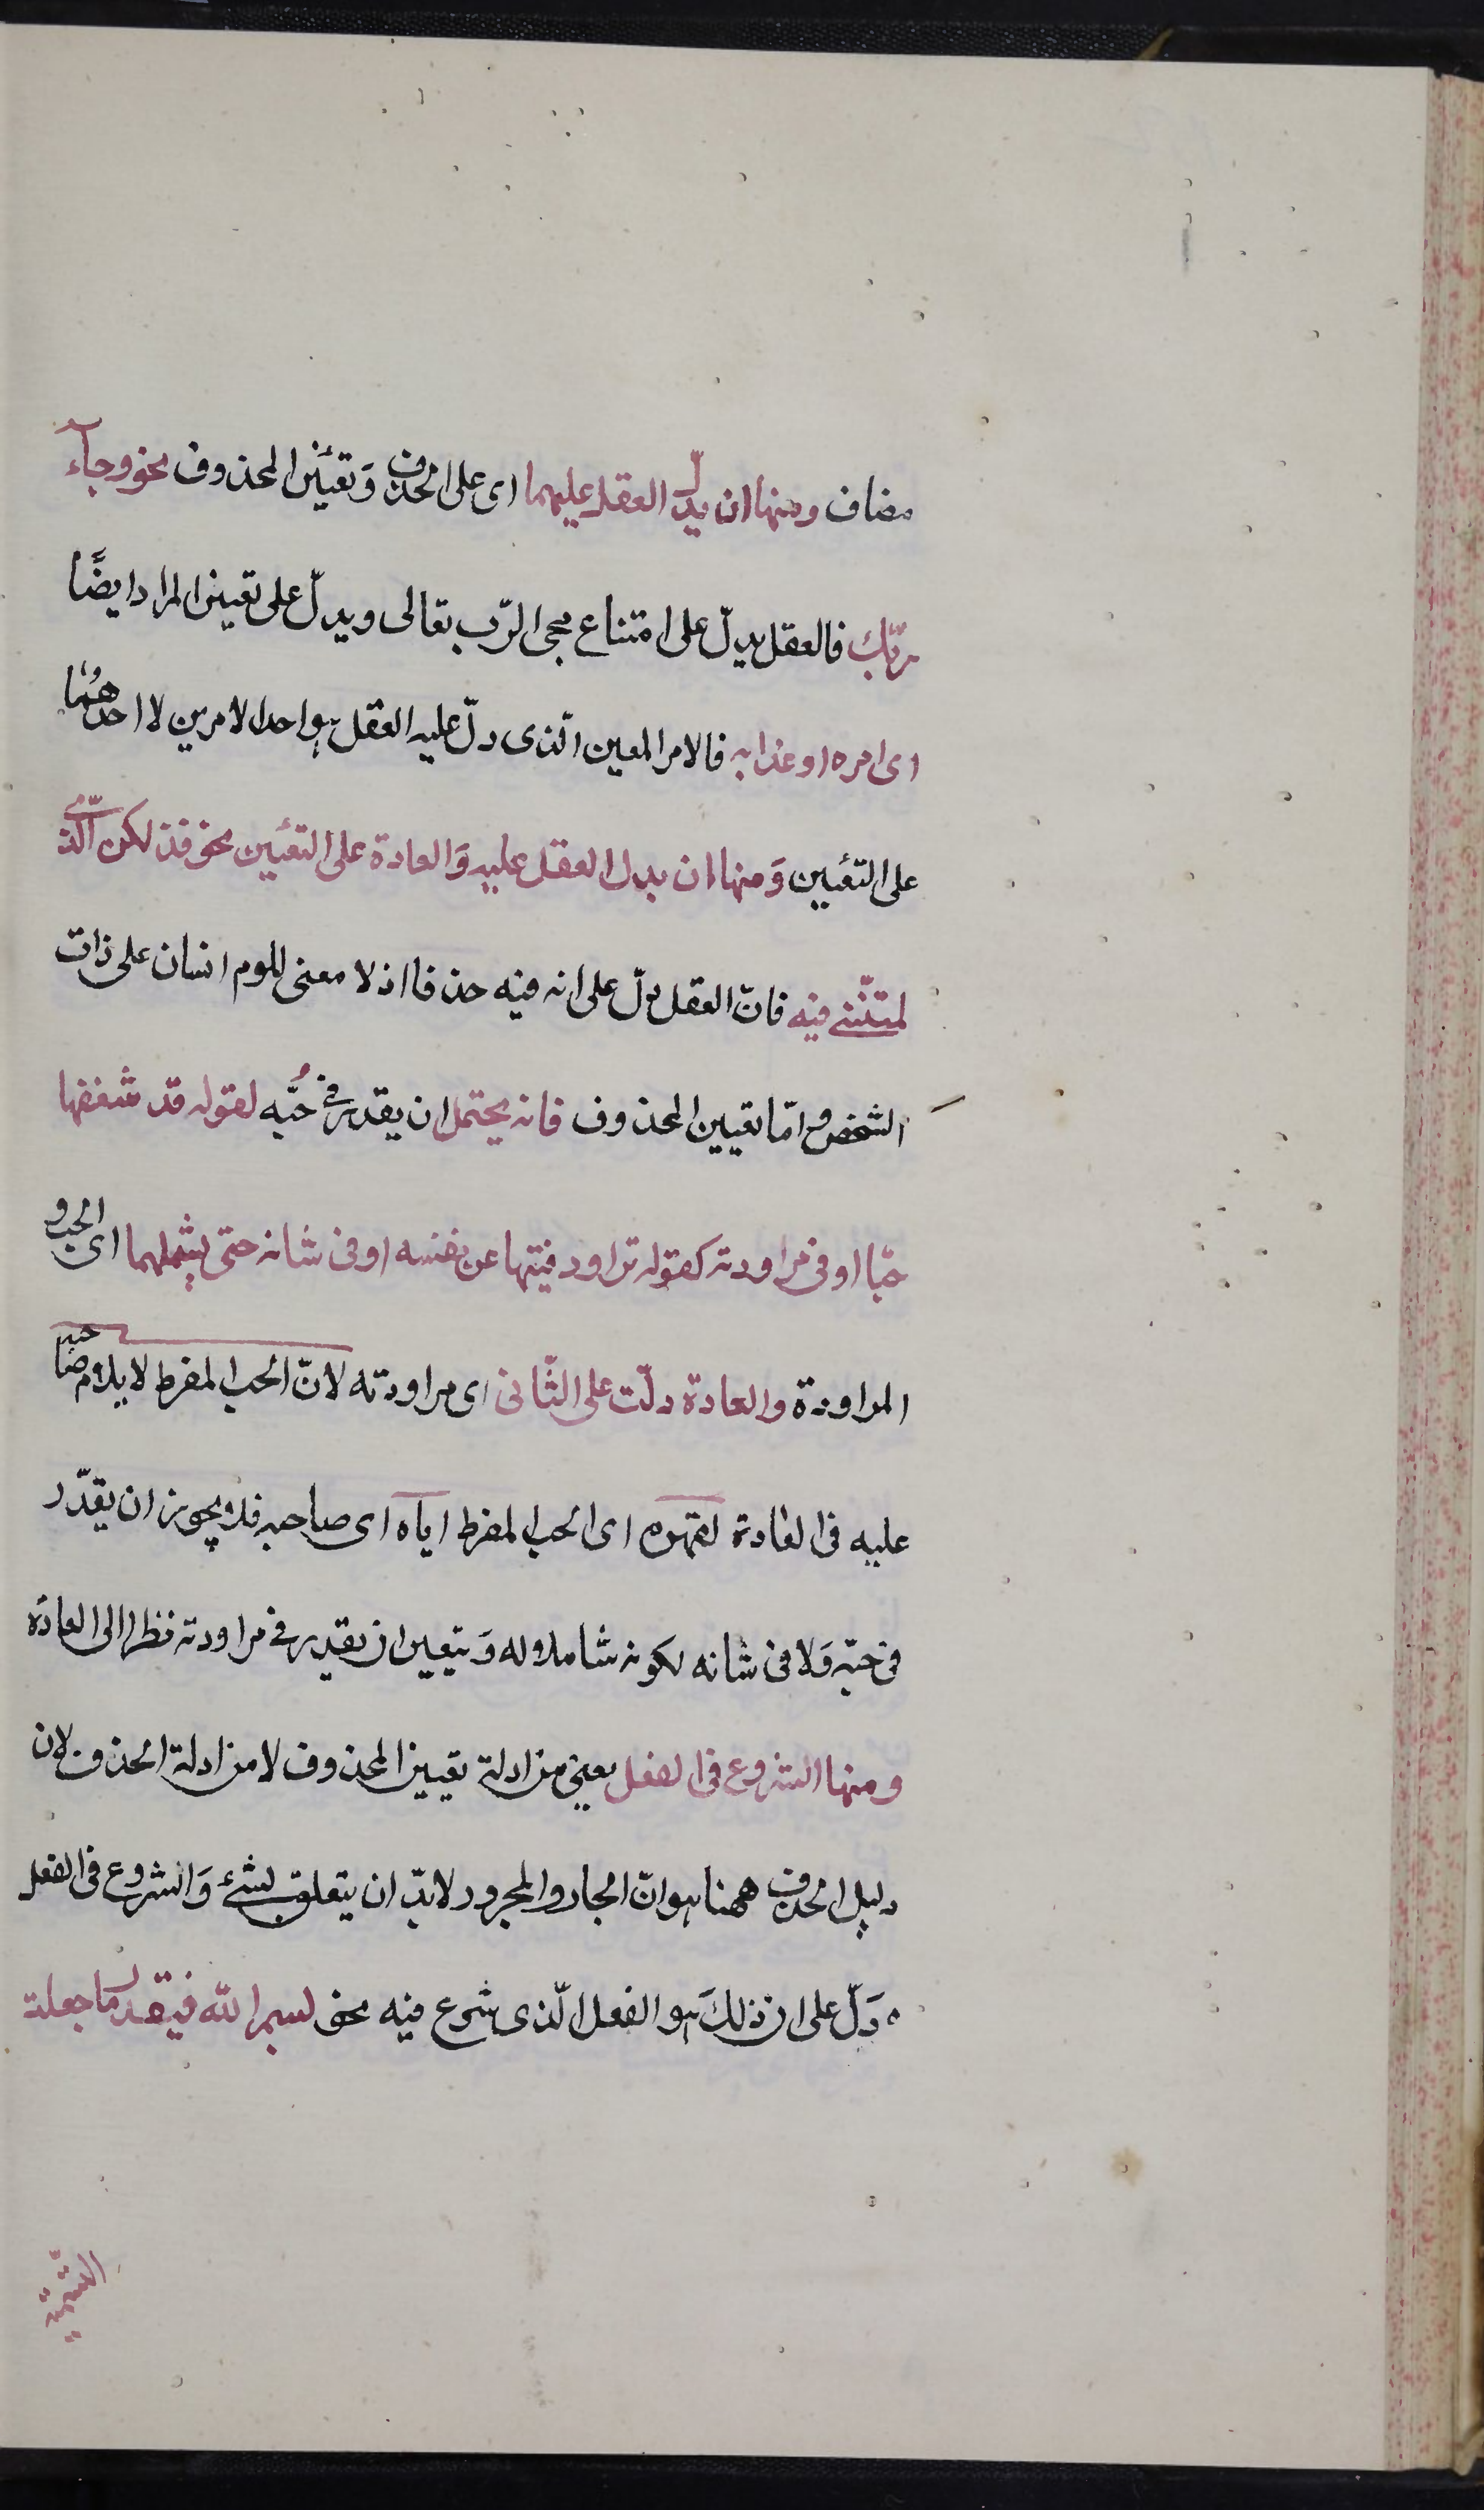 مضاف ومنها ان يدلّ العقل عليهما اى على الحذف وَتعيّن المحذوف نحو وجاء
ربّك فالعقل يدلّ على امتناع مجى الرّب تعالى ويدلّ على تعيين المراد ايضًا
اى امره او عذابه فالامر المعين الّذى دلّ عليه العقل هو احد الامرين لا احدهُما
على التعُيين وَمنها ان يدل العقل عليه وَالعادة على التعُيين نحو فذلكن الّذى
لمتنّنى فيه فانّ العقل دلّ على انه فيه حذفا اذ لا معنى للوم انسان على ذات
الشخص و امّا تعيين المحذوف فانه يحتمل ان يقدر فى حُبّه لقوله قد شغفها
حبّا او فى مراودته كقوله تراود فتيها عن نفسه او فى شانه حتى يشملهما اى الحب و
المراودة والعادة دلّت على الثّانى اى مراودته لانّ الحب المفرط لا يلام صاحبه
عليه فى العادة لقهره اى الحب المفرط اياه اى صاحبه فلا يجوز ان يقدّر
فى حبّه وَلا فى شانه لكونه شاملا له وَيتعين ان يقدر فى مراودته نظرا الى العادة
ومنها الشروع فى الفعل يعنى من ادلة تعيين المحذوف لا من ادلة الحذف لان
دليل الحذف ههنا هو انّ الجار والمجرور لا بدّ ان يتعلق بشئ وَالشروع فى الفعل
دَلّ على ان ذلكَ هو الفعل الّذى شرع فيه نحو بسم الله فيقدر ما جعلت
التسّمية